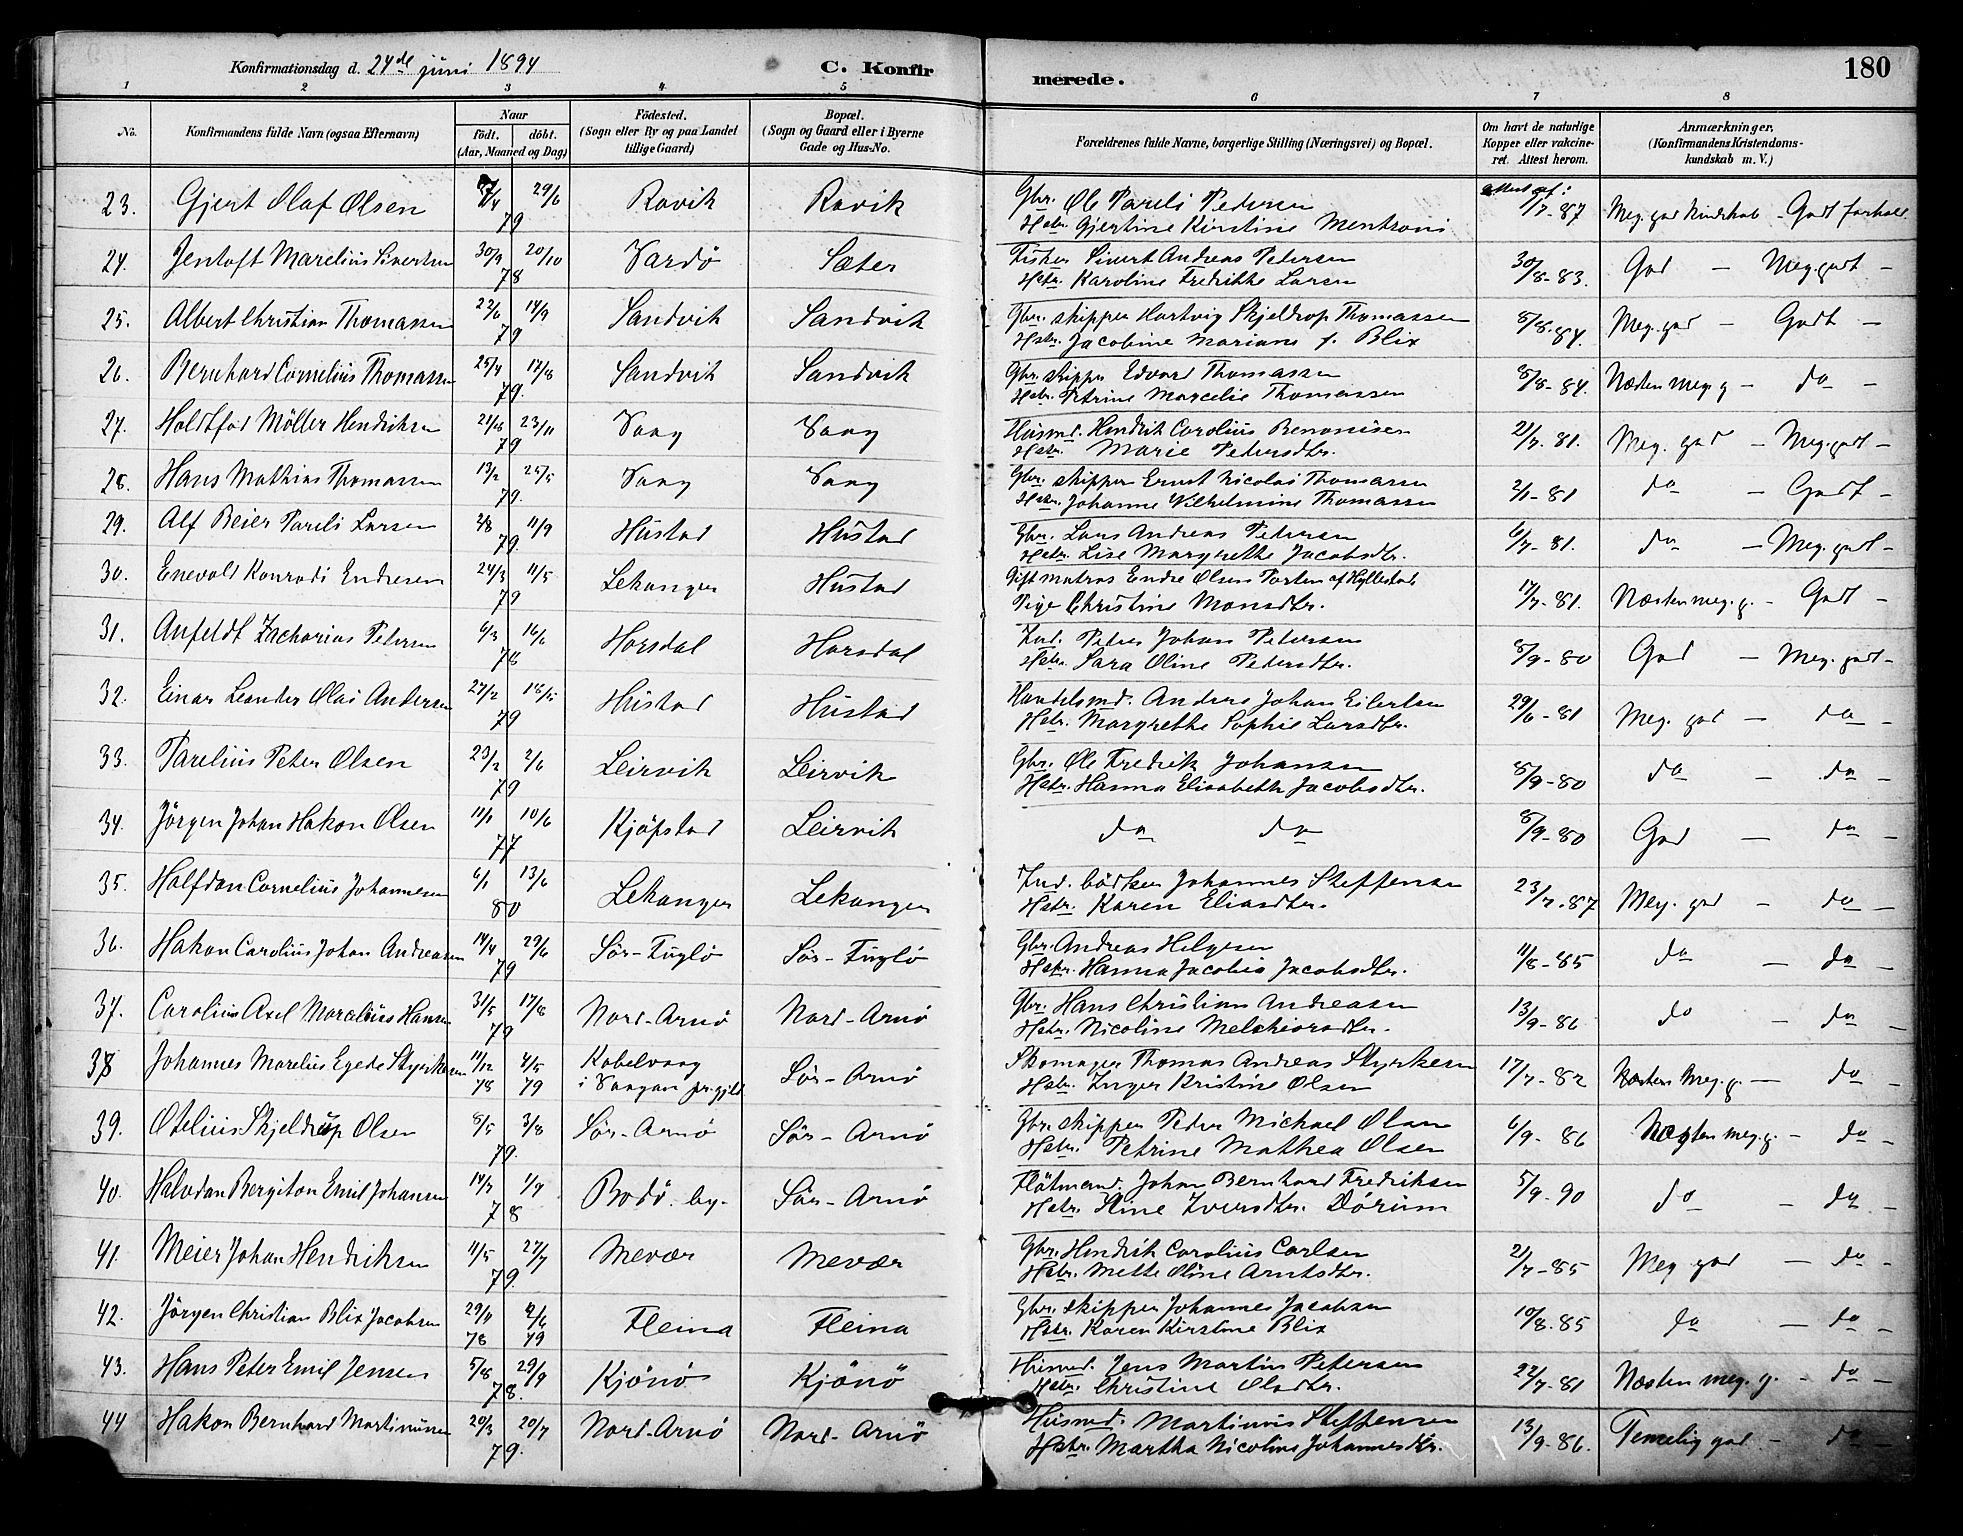 Konfirmationsdag d. 24de juni 1894 C. Konfirmerede. 180
1 2 3 4 5 6 7 8
No. Konfirmandens fulde Navn (ogsaa Efternavn) Naar født. døbt. (Aar, Maaned og Dag) Födested. (Sogn eller By og paa Landet tillige Gaard) Bopæl. (Sogn og Gaard eller i Byerne Gade og Hus-No. Forældrenes fulde Navne, borgerlige Stilling (Næringsvei) og Bopæl. Om havt de naturlige Kopper eller vakcineret. Attest herom. Anmærkninger. (Konfirmandens Kristendomskundskab m. V.)
23. Gjert Olaf Olsen 29/6 79 Ravik Ravik Gbr. Ole Pareli Pedersen attest af: 1/7-87 Meg. god Kundskab - Godt forhold
Hstr. Gjertine Kirstine Mentzoni
24. Jentoft Marelius Sivertsen 30/9 20/10 78 Vardö Sæter Fisker Sivert Andreas Petersen 30/8-83. God - Meg. godt -
Hstr. Karoline Fredrikke Larsen
25. Albert Christian Thomassen 22/6 14/9 79 Sandvik Sandvik Gbr. skipper Hartvig Skjeldrop Thomassen 8/8-84. Meg. god - Godt -
Hstr. Jacobine Mariane f. Blix
26. Bernhard Cornelius Thomassen 25/4 17/8 79. Sandvik Sandvik Gbr. skipper Edvard Thomassen 8/8-84. Næsten meg g - do -
Hstr. Petrine Marcelie Thomassen
27. Holdtfod Möller Hendriksen 23/11 79 Vaag Vaag Husmd. Hendrik Carolius Benonisen 21/7-81. Meg. god - Meg. godt -
Hstr. Marie Petersdtr.
28. Hans Mathias Thomassen 13/2 25/5 79. Vaag Vaag Gbr. skipper Ernst Nicolai Thomassen 2/1-81 do - Godt -
Hstr. Johanne Vilhelmine Thomassen
29. Alf Beier Pareli Larsen 2/8 11/9 79. Hustad Hustad Gbr. Lars Andreas Petersen 6/7-81. do - Meg. godt -
Hstr. Lise Margrethe Jacobsdtr.
30. Enevolt Konradi Endresen 24/3 11/5 79 Lekanger Hustad Gift matros Endre Olsen Porten af Hyllestad. 17/7-81. Næsten meg. g. - Godt -
Pige Christine Monsdtr.
31. Anfeldt Zacharias Petersen 6/3 16/6 78 Horsdal Horsdal Ind. Peter Johan Petersen 8/9-80 God - Meg. godt -
Hstr. Sara Oline Pedersdtr.
32. Einar Leander Olai Andersen 27/2 18/5 79 Hustad Hustad Handelsmd. Anders Johan Eilertsen 29/6-81 Meg. god - do -
Hstr. Margrethe Sophie Larsdtr.
33. Parelius Peter Olsen 23/2 2/6 79 Leirvik Leirvik Gbr. Ole Fredrik Johansen 8/9-80 do - do -
Hstr. Hanna Elisabeth Jacobsdtr.
34. Jörgen Johan Hakon Olsen 11/1 10/6 77 Kjöpstad Leirvik do do 8/9-80 God - do -
35. Halfdan Cornelius Johannesen 6/1 13/6 80 Lekanger Lekanger Ind. bödker Johannes Steffensen 23/7-87 Meg. god - do -
Hstr. Karen Eliasdtr.
36. Hakon Carolius Johan Andreasen 14/4 29/6 79 Sör-Fuglö Sör-Fuglö Gbr. Andreas Helgesen 11/8-85 do - do -
Hstr. Hanna Jacobia Jacobsdtr.
37. Carolius Axel Marcelius Hansen 31/5 17/8 79 Nord-Arnö Nord-Arnö Gbr. Hans Christian Andreasen 13/9-86 do - do -
Hstr. Nicoline Melchiorsdtr.
38 Johannes Marelius Egede Styrkesen 11/12 78 4/5 79 Kabelvaag i Vaagan prgjld Sör-Arnö Skomager Thomas Andreas Styrkesen 17/7-82 Næsten Meg. g. - do -
Hstr. Inger Kristine Olsen
39. Otelius Skjeldrup Olsen 8/5 3/8 79. Sör-Arnö Sör-Arnö Gbr. skipper Peder Michael Olsen 6/9-86 Næsten meg. g. - do -
Hstr. Petrine Mathea Olsen
40. Halvdan Bergiton Emil Johansen 14/7 1/9 78 Bodö by. Sör-Arnö Flötmand. Johan Bernhard Fredriksen 5/9-90 do - do -
Hstr. Iversdtr. Dörum
41. Meier Johan Hendriksen 11/5 27/7 79. Mevær Mevær Gbr. Hendrik Carolius Carlsen 21/7-85 Meg god - do -
Hstr. Mette Oline Arntsdtr.
42. Jörgen Christian Blix Jacobsen 29/11 78 2/6 79 Fleina Fleina Gbr. skipper Johannes Jacobsen 10/8-85 do - do -
Hstr. Karen Kirstine Blix
43. Hans Peter Emil Jensen 5/8 29/9 78. Kjönö Kjönö Husmd. Jens Martin Petersen 22/7-81 Næsten meg. g. - do -
Hstr. Christine Olsdtr.
44 Hakon Bernhard Martinussen 20/3 20/7 79. Nord-Arnö Nord-Arnö Husmd. Martinus Steffensen 13/9-86. Temelig god - do -
Hstr. Martha Nicolina Johannesdtr.